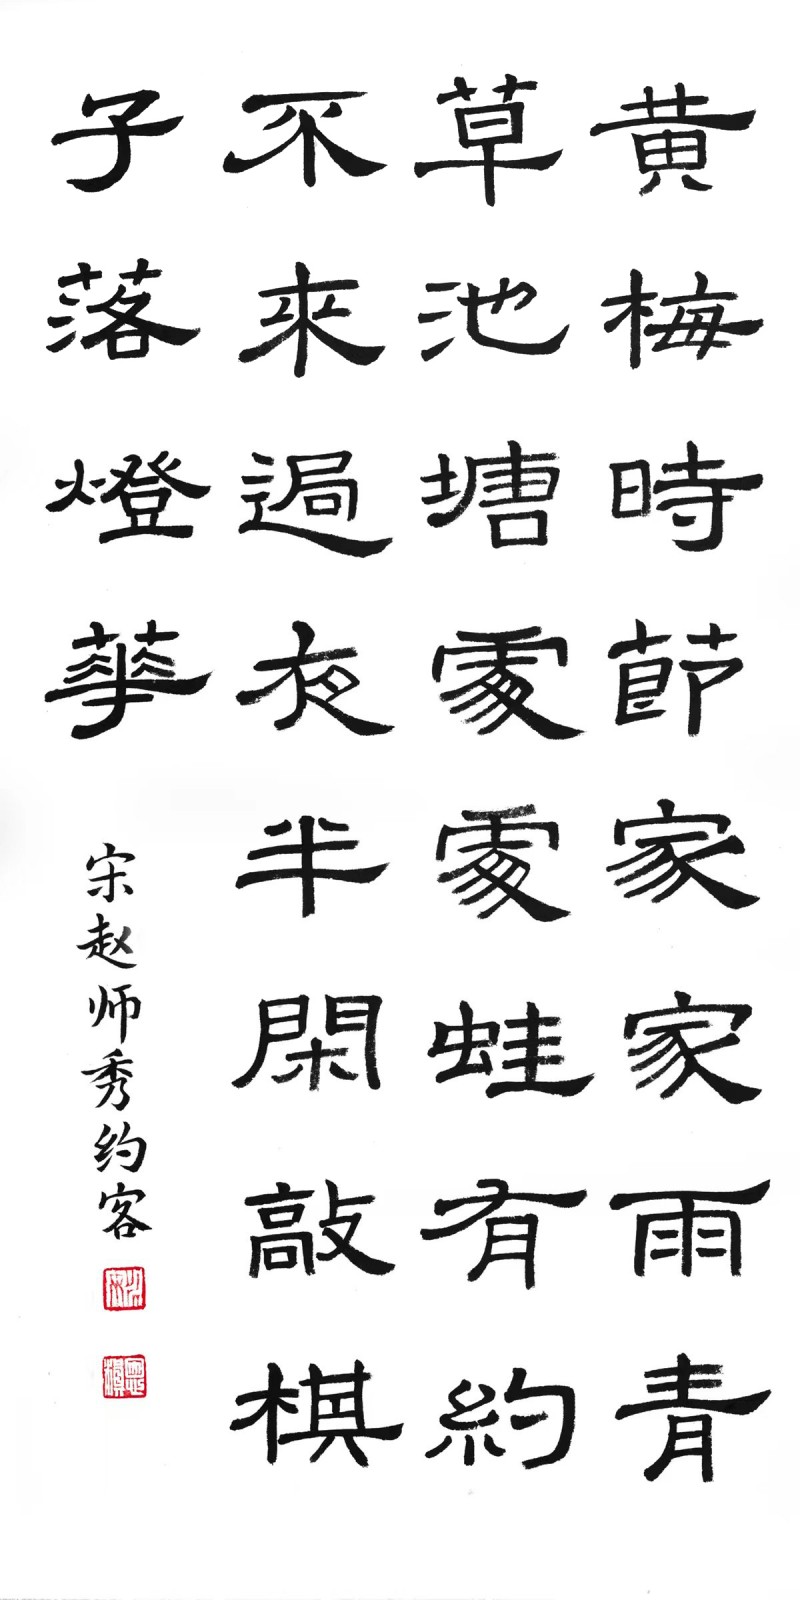 黄梅時節家家雨青
草池塘處處蛙有約
不來過夜半閑敲棋
子落燈華
宋赵师秀约客